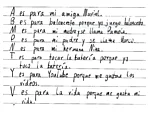 A es para mi amiga Muriel.
B es para baloncesto porque yo juego baloncesto.
M es para mi madre se llama Pamela.
P es para mi padre y se llama Mario.
N es para mi hermana Nina.
T es para tocar la batería porque yo
toco la batería.
Y es para Youtube porque me gustan los
videos.
V es para La vida porque me gusta mi
vida!